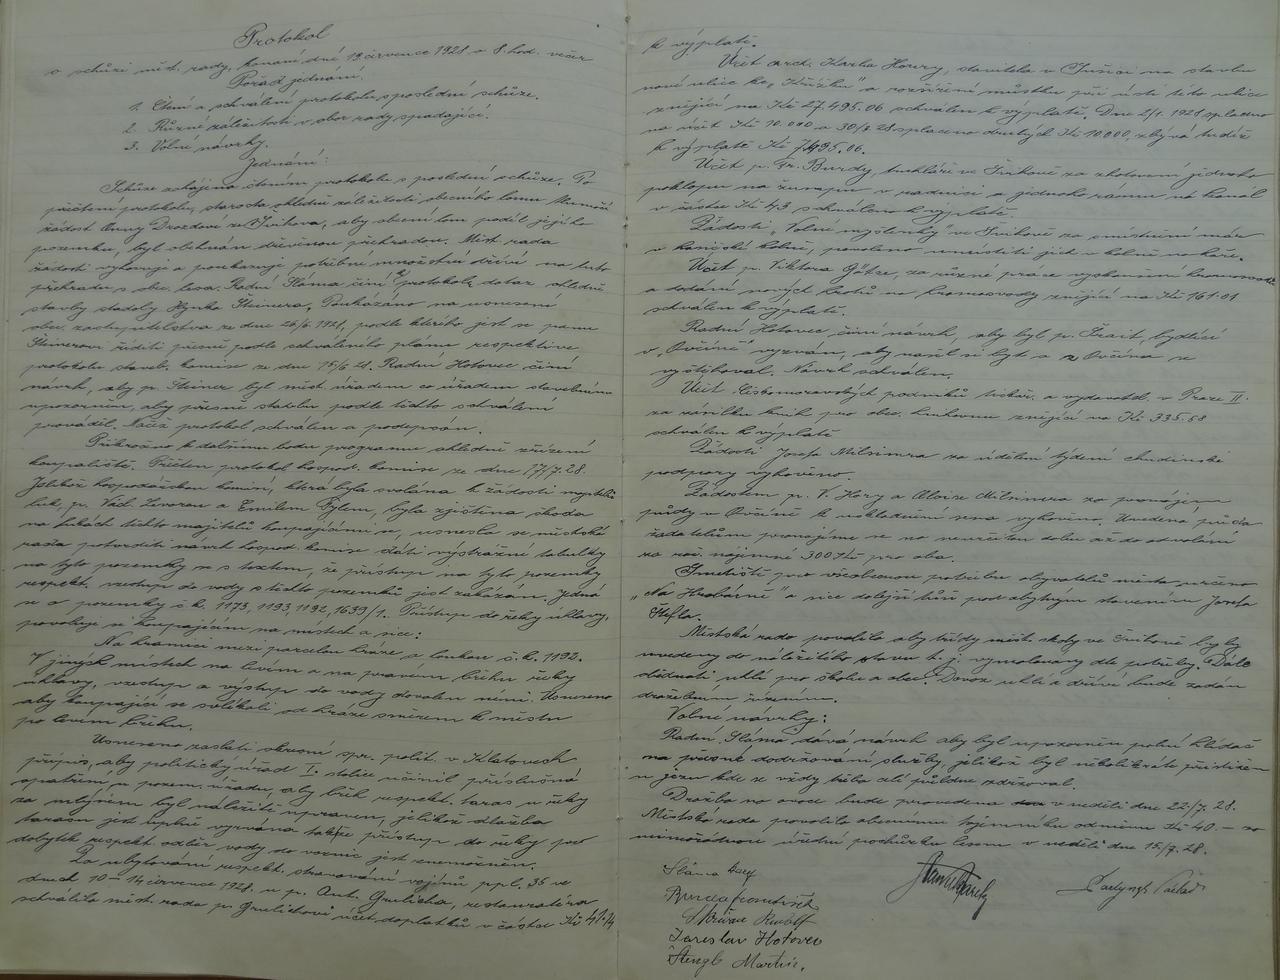 Protokol
o schůzi měst. rady, konané dne 19. července 1928 o 8. hod. večer
Pořad jednání.
1. Čtení a schválení protokolu s poslední schůze.
2. Různé záležitosti v obor rady spadající.
3. Volné návrhy.
Jednání:
Schůze zahájena čtením protokolu s poslední schůze. Po
přečtení protokolu, starosta ohledně záležitosti obecního lomu
žádost Anny Drozdové ze aby obecní lom podél jejího
pozemku, byl obehnán dřevěnou přehradou. Měst. rada
žádosti vyhovuje a poukazuje potřebné množství dříví na tuto
přehradu s obec. lesa. Radní Sláma činí k protokolu dotaz ohledně
stavby stodoly Hynka Steinera. Poukázáno na usnesení
obec. zastupitelstva ze dne 26/6 1928, podle kterého jest se panu
Steinerovi říditi přesně podle schváleného plánu respektive
protokolu staveb. komise ze dne 15/6 28. Radní Hotovec činí
návrh, aby p. Steiner byl měst. úřadem co úřadem stavebním
upozorněn, aby přesně stavbu podle těchto schválení
prováděl. Načež protokol schválen a podepsán.
Přikročeno k dalšímu bodu programu ohledně zřízení
koupaliště. Přečten protokol hospod. komise ze dne 17/7. 28.
Jelikož hospodářskou komisí, která byla svolána k žádosti majitelů
luk, p. Václ. Levorou a Emilem Pylem, byla zjištěna škoda
na lukách těchto majitelů koupajícími, usnesla se městská
rada potvrditi návrh hospod. komise dáti výstražné tabulky
na tyto pozemky se s textem, že přístup na tyto pozemky
respekt. vzestup do vody s těchto pozemků jest zakázán. Jedná
se o pozemky č. k. 1173, 1193, 1192, 1639/1. Přístup do řeky úhlavy,
povoluje se koupajícím na místech a sice:
Na hranici mezi parcelou hráze a loukou č. k. 1192.
V jiných místech na levém a na pravém břehu řeky
úhlavy, vzestup a výstup do vody dovolen není. Usneseno
aby koupající se svlékali od hráze směrem k městu
po levém břehu.
Usneseno zaslati okresní spr. polit. v Klatovech
přípis, aby politický úřad I. stolice učinil příslušná
opatření, u pozem. úřadu, aby břeh respekt. taras u řeky
za mlýnem byl náležitě upraven, jelikož dlažba
tarasu jest úplně vyrvána takže přístup do řeky pro
dobytek respekt odběr vody do voznic jest znemožněn.
Za ubytování respekt. stravování vojínů p. pl. 35 ve
dnech 10–14 července 1928 u p. Ant. Grulicha, restauratéra
schválila měst. rada p. Grulichovi účet doplatků v částce Kč 41.14
k výplatě.
Účet arch. Karla Houry, stavitele v Sušici na stavbu
nové ulice ku „Křížku" a rozšíření můstku při ústí této ulice
znějící na Kč 27.495.06 schválen k výplatě. Dne 2/1. 1928 splaceno
na účet Kč 10.000 a 30/ 28 splaceno druhých Kč 10.000, zbývá tudíž
k výplatě Kč 7.495.06.
Účet p. Fr. Burdy, truhláře ve za zhotovení jednoho
poklopu na žumpu v radnici a jednoho rámu na kanál
v částce Kč 43 schválen k výplatě.
Žádosti „Volné myšlenky" ve za umístění már
v hasičské kolně, povoleno umístiti jich v kolně
Účet p. Viktora Götze, za různé práce vyzkoušení hromosvodů
a dodání nových hrotů na hromosvody znějící na Kč 161.01
schválen k výplatě.
Radní Hotovec činí návrh, aby byl p. Trait, bydlící
v „Ovčíně" vyzván, aby našel si byt a z Ovčína se
vystěhoval. Návrh schválen.
Účet Českomoravských podniků tiskař. a vydavatel. v Praze II.
za zásilku knih pro obec. knihovnu znějící na Kč 335.68
schválen k výplatě
Žádosti Josefa Milsimra za udělení týdení chudinské
podpory vyhověno.
Žádostem p. V. Hory a Aloise Milsimra za pronájem
půdy v Ovčíně k uskladnění sena vyhověno. Uvedená půda
žadatelům pronajme se na neurčitou dobu až do odvolání
za roč. nájemné 300 Kč pro oba.
Smetiště pro všeobecnou potřebu obyvatelů města určeno
„Na Hrobárně" a sice dolejší tůň pod obytným stavením Josefa
Štefla.
Městská rada povolila aby třídy měšť. školy ve byly
uvedeny do náležitého stavu t. j. vymalovány dle potřeby. Dále
objednati uhlí pro školu a obec. Dovoz uhlí a dříví bude zadán
dražebním řízením.
Volné návrhy:
Radní Sláma dává návrh aby byl upozorněn polní hlídač
na přesné dodržování služby, jelikož byl několikráte přistižen
u jezu kde se vždy třeba celé půldne zdržoval.
Dražba na ovoce bude provedena v neděli dne 22/7. 28.
Městská rada povolila obecnímu tajemníku odměnu Kč 40.— za
mimořádnou úřední pochůzku lesem v neděli dne 15/7. 28.
Sláma Josef
Skřivan Rudolf
Jaroslav Hotovec
Stengl Martin.